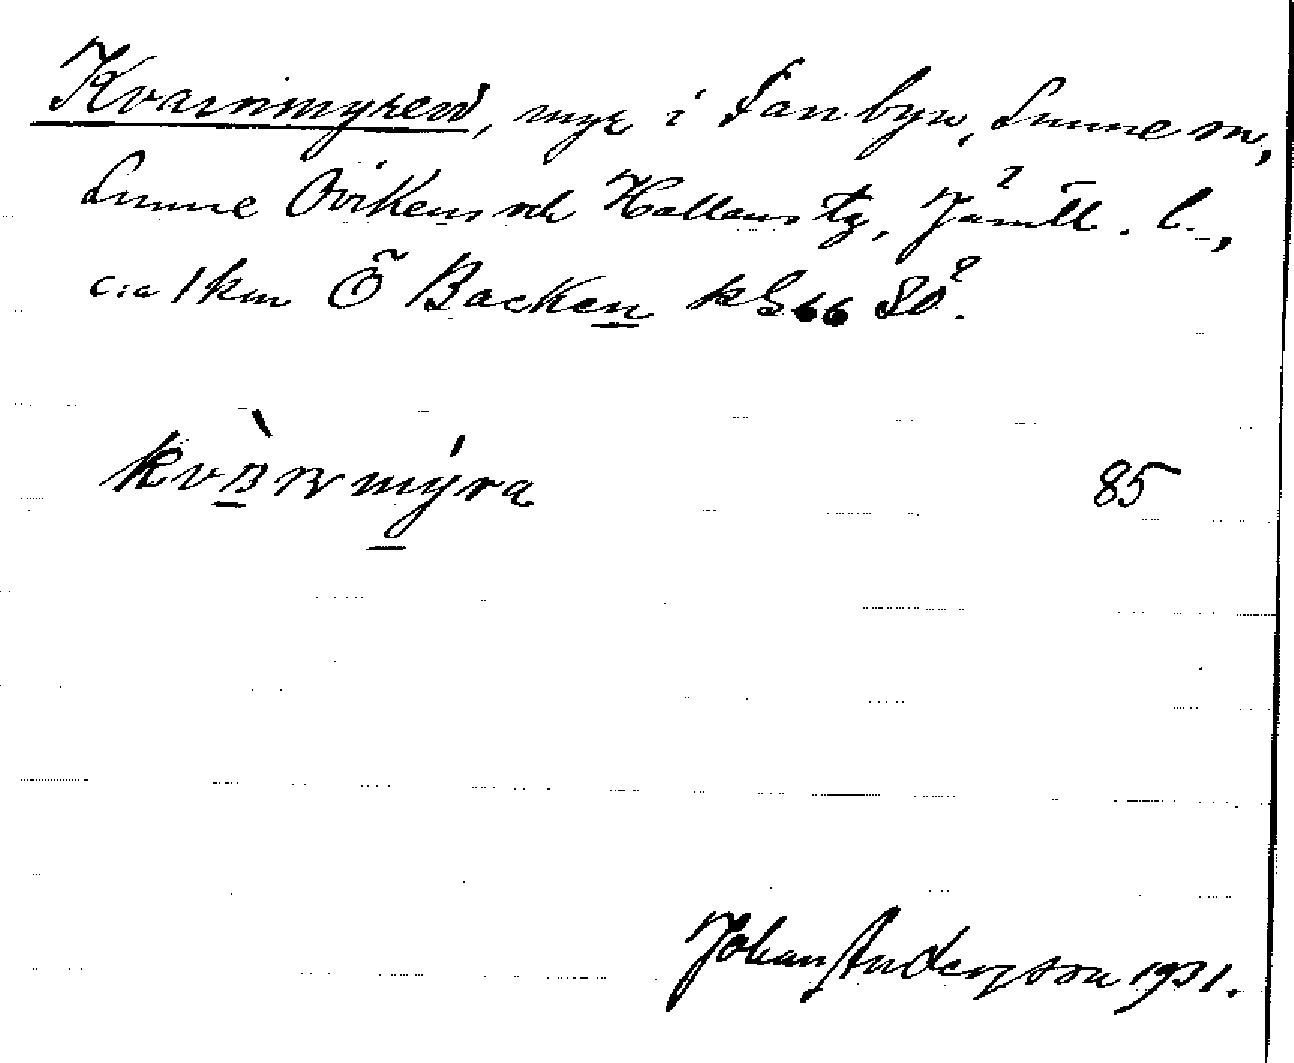 Kvarnmyren, myr i Fanbyn, Sunne sn,
Sunne Oviken och Hallens tg, Jämtl. l.,
c:a 1 km Ö Backen kS66 SO.
kvȧrnmýra 85
Johan Anderson 1931.